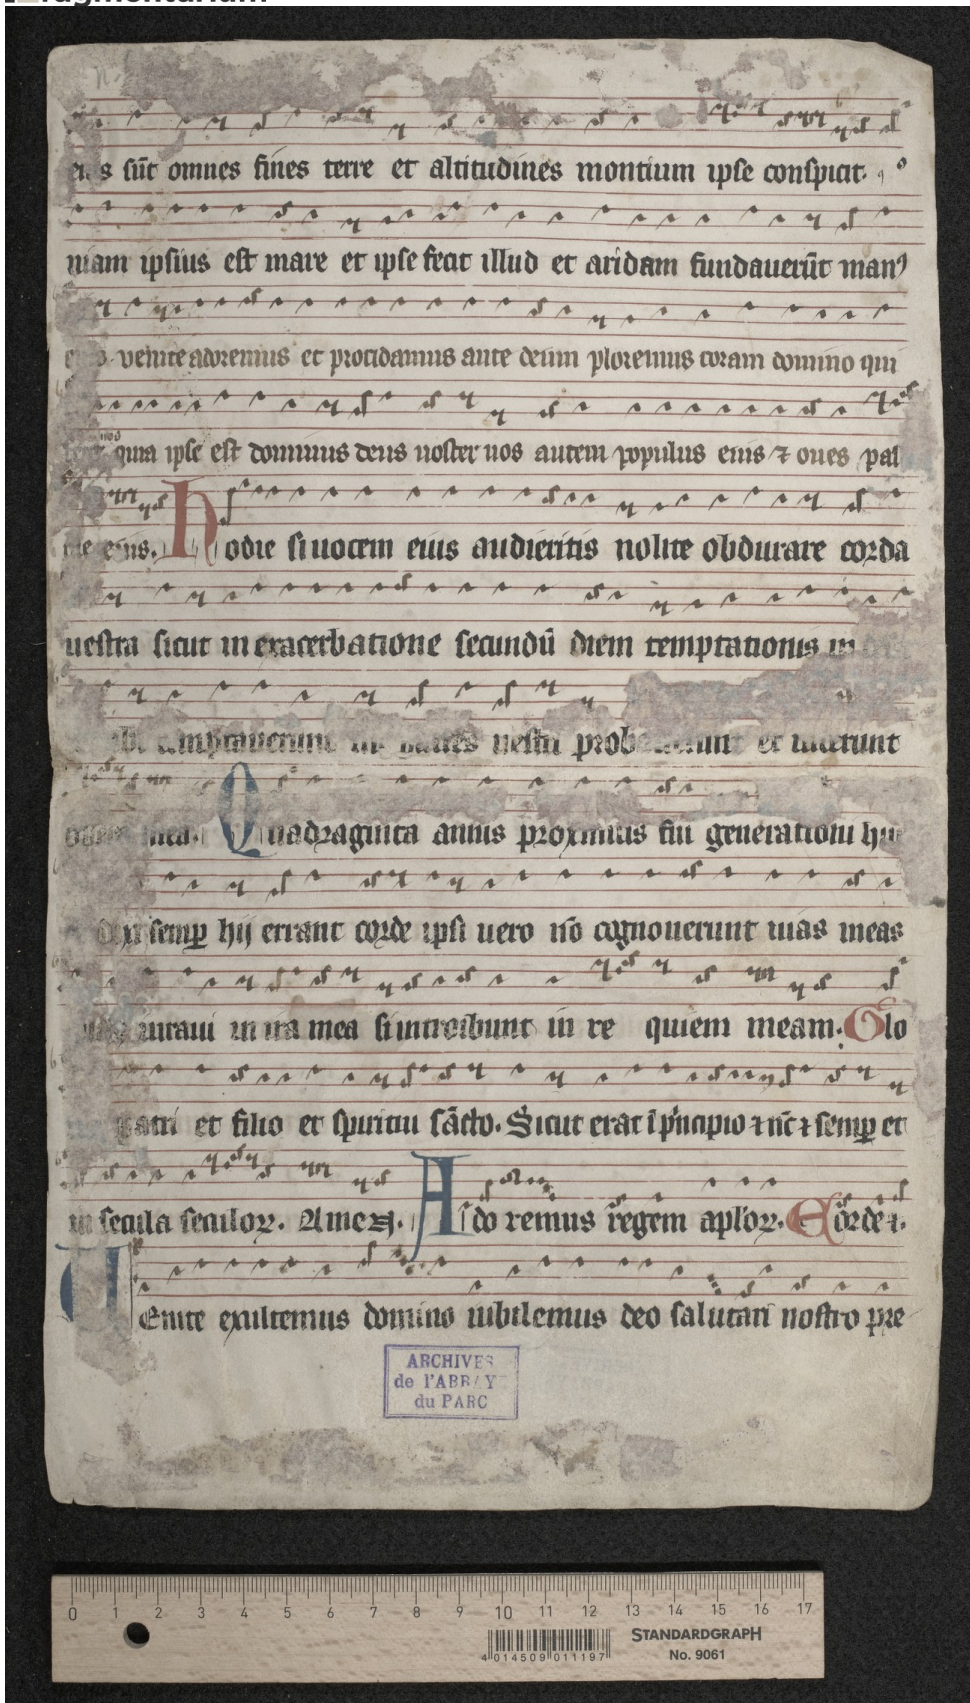 sūt omnes fines terre et altitudines montium ipse conspicit.
niam ipsius est mare et ipse fecit illud et aridam fundauerūt manꝰ
venite adoremus et procidamus ante deum ploremus coram domino qui
quia ipse est dominus deus noster nos autem populus eius ⁊ oues pas
eius. Hodie si uocem eius audieritis nolite obdurare corda
uestra sicut in exacerbatione secundū diem temptationis in
patres vestri et uiderunt
Quadraginta annis proximus fui generationi
semꝑ hij errant corde ipsi uero nō cognouerunt uias meas
iuraui in ira mea si introibunt in re quiem meam. Glo
patri et filio et spiritui sācto. Sicut erat ī pͥncipio ⁊ nūc ⁊ semꝑ et
in secula seculoꝝ. Amen. Ado remus regem aploꝝ.
Uenite exultemus domino iubilemus deo salutari nostro pre
ARCHIVES
de l'ABBAYE
du PARC
0 1 2 3 4 5 6 7 8 9 10 11 12 13 14 15 16 17
STANDARDGRAPH
No. 9061
4 014509 011197